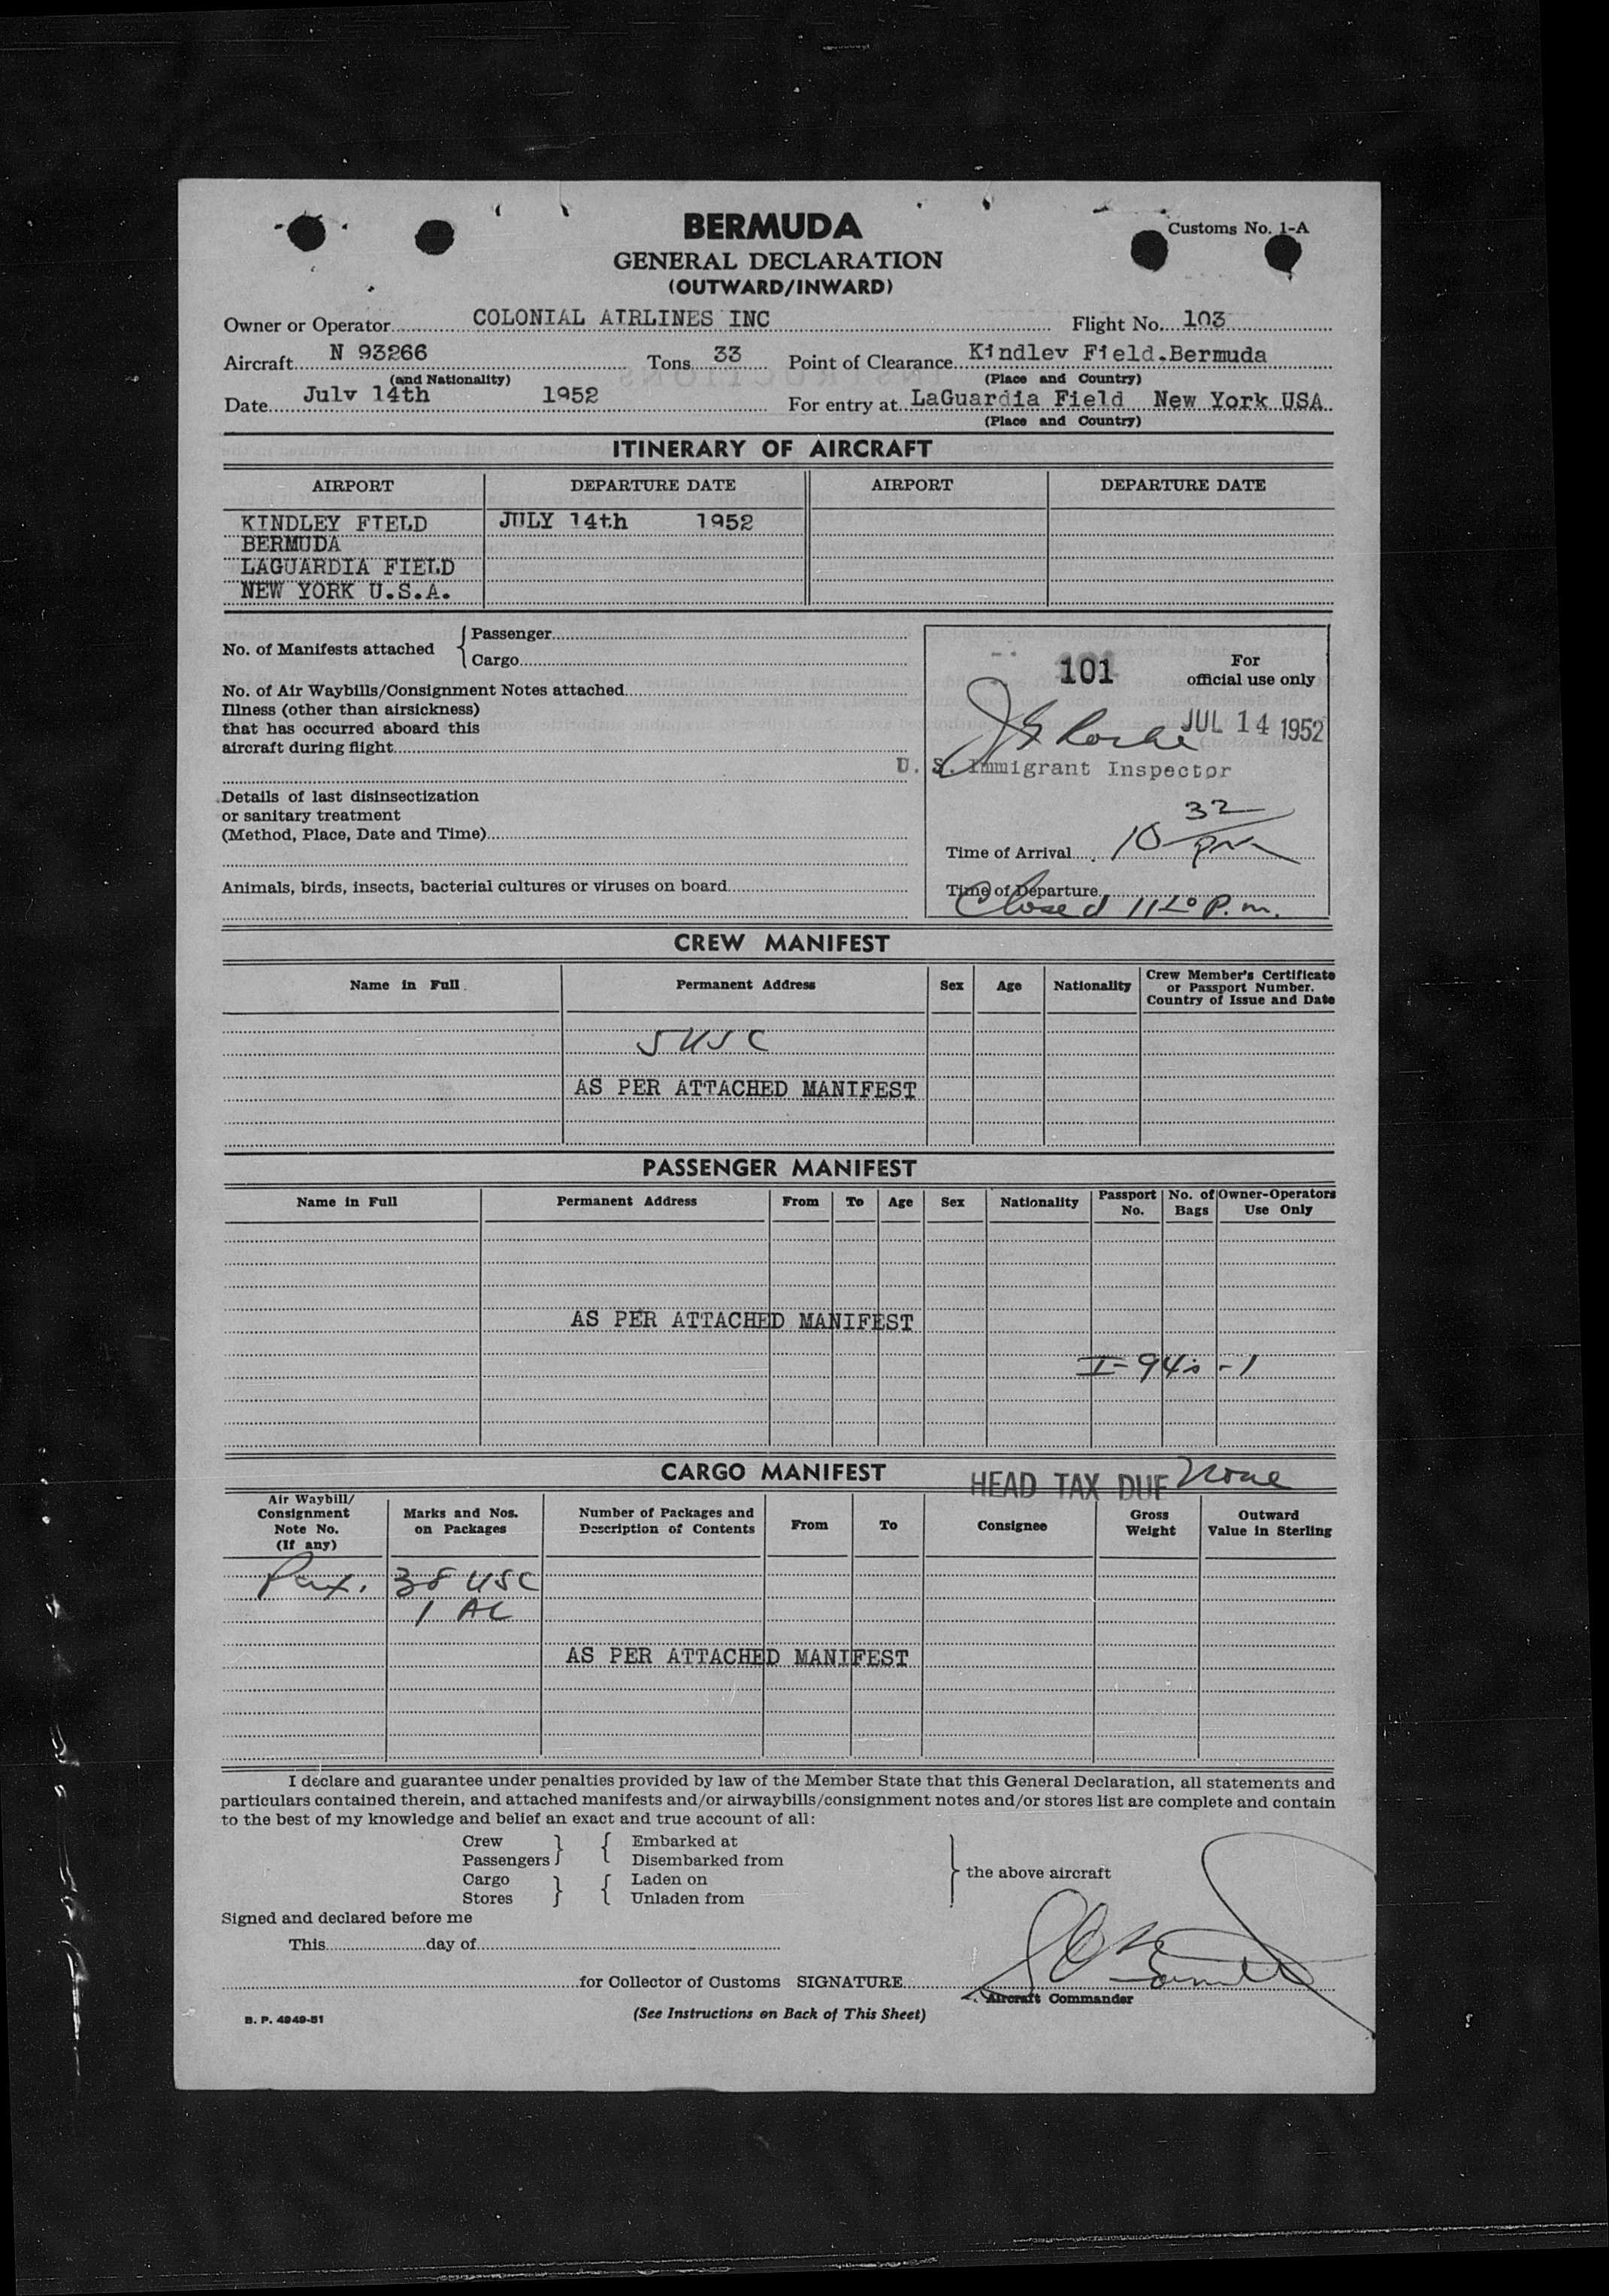 BERMUDA
Customs No. 1-A
GENERAL DECLARATION
(OUTWARD/INWARD)
Owner or Operator COLONIAL AIRLINES INC Flight No. 103
Aircraft N 93266 Tons 33 Point of Clearance Kindley Field.Bermuda
(and Nationality) (Place and Country)
Date July 14th 1952 For entry at LaGuardia Field New York USA
(Place and Country)
ITINERARY OF AIRCRAFT
AIRPORT DEPARTURE DATE AIRPORT DEPARTURE DATE
KINDLEY FIELD JULY 14th 1952
BERMUDA
LAGUARDIA FIELD
NEW YORK U.S.A.
No. of Manifests attached { Passenger
Cargo
No. of Air Waybills/Consignment Notes attached
Illness (other than airsickness)
that has occurred aboard this
aircraft during flight
Details of last disinsectization
or sanitary treatment
(Method, Place, Date and Time)
Animals, birds, insects, bacterial cultures or viruses on board
101 For
official use only
JUL 14 1952
U. S. Immigrant Inspector
Time of Arrival 10 32 pm
Time of Departure
Closed 11 20 P.m.
CREW MANIFEST
Name in Full Permanent Address Sex Age Nationality Crew Member's Certificate or Passport Number. Country of Issue and Date
5 USC
AS PER ATTACHED MANIFEST
PASSENGER MANIFEST
Name in Full Permanent Address From To Age Sex Nationality Passport No. No. of Bags Owner-Operators Use Only
AS PER ATTACHED MANIFEST
I-94s - 1
CARGO MANIFEST
HEAD TAX DUE None
Air Waybill/ Consignment Note No. (If any) Marks and Nos. on Packages Number of Packages and Description of Contents From To Consignee Gross Weight Outward Value in Sterling
Pax. 38 USC
1 AC
AS PER ATTACHED MANIFEST
I declare and guarantee under penalties provided by law of the Member State that this General Declaration, all statements and
particulars contained therein, and attached manifests and/or airwaybills/consignment notes and/or stores list are complete and contain
to the best of my knowledge and belief an exact and true account of all:
Crew } { Embarked at
Passengers Disembarked from
} the above aircraft
Cargo } { Laden on
Stores Unladen from
Signed and declared before me
This day of
for Collector of Customs SIGNATURE
Aircraft Commander
(See Instructions on Back of This Sheet)
B. P. 4949-51